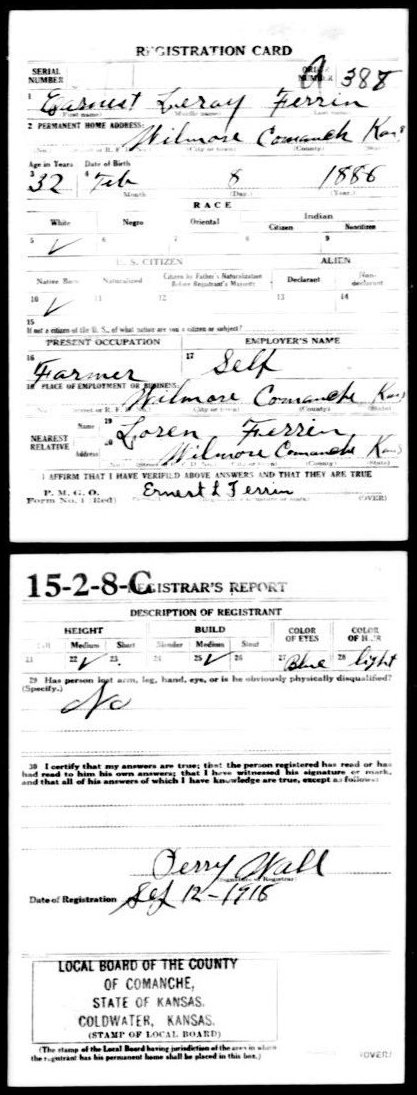 REGISTRATION CARD
SERIAL NUMBER
ORDER NUMBER A 388
1 Earnest Leroy Ferrin
(First name) (Middle name) (Last name)
2 PERMANENT HOME ADDRESS:
Wilmore Comanche Kans
(City or town) (County) (State)
Age in Years Date of Birth
3 32 4 Feb 8 1886
Month (Day.) (Year.)
RACE
White Negro Oriental Indian
Citizen Noncitizen
5 ✓ 6 7 8 9
U. S. CITIZEN ALIEN
Native Born Naturalized Citizen by Father's Naturalization Before Registrant's Majority Declarant Non-declarant
10 ✓ 11 12 13 14
15
If not a citizen of the U. S., of what nation are you a citizen or subject?
PRESENT OCCUPATION EMPLOYER'S NAME
16 Farmer 17 Self
18 PLACE OF EMPLOYMENT OR BUSINESS:
Wilmore Comanche Kans
(City or town) (County) (State)
NEAREST RELATIVE
Name 19 Loren Ferrin
Address 20 Wilmore Comanche Kans
I AFFIRM THAT I HAVE VERIFIED ABOVE ANSWERS AND THAT THEY ARE TRUE
P. M. G. O.
Form No. 1 (Red) Ernest L Ferrin (OVER)
15-2-8-C REGISTRAR'S REPORT
DESCRIPTION OF REGISTRANT
HEIGHT BUILD COLOR OF EYES COLOR OF HAIR
Tall Medium Short Slender Medium Stout
21 22 ✓ 23 24 25 ✓ 26 27 Blue 28 light
29 Has person lost arm, leg, hand, eye, or is he obviously physically disqualified?
(Specify.)
No
30 I certify that my answers are true; that the person registered has read or has
had read to him his own answers; that I have witnessed his signature or mark,
and that all of his answers of which I have knowledge are true, except as follows:
Perry Wall
(Signature of Registrar)
Date of Registration Sep 12-1918
LOCAL BOARD OF THE COUNTY
OF COMANCHE,
STATE OF KANSAS.
COLDWATER, KANSAS.
(STAMP OF LOCAL BOARD)
(The stamp of the Local Board having jurisdiction of the area in which
the registrant has his permanent home shall be placed in this box.)
(OVER)